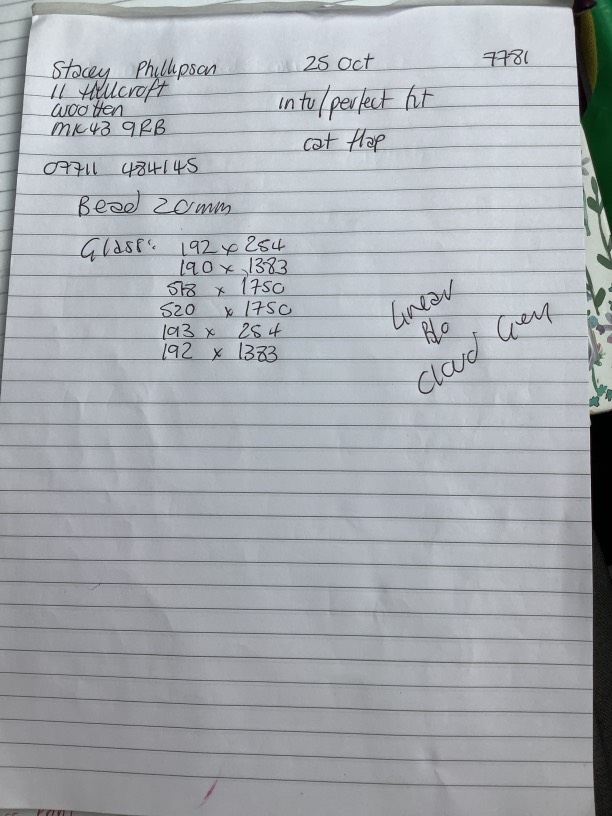 Stacey Phillipson 25 Oct 7781
11 Hillcroft
Wootten
MK43 9RB
intu/perfect fit
cat flap
07711 484145
Bead 20mm
Glass: 192 x 254
190 x 1383
518 x 1750
520 x 1750
193 x 254
192 x 1383
Linear
B/o
Cloud